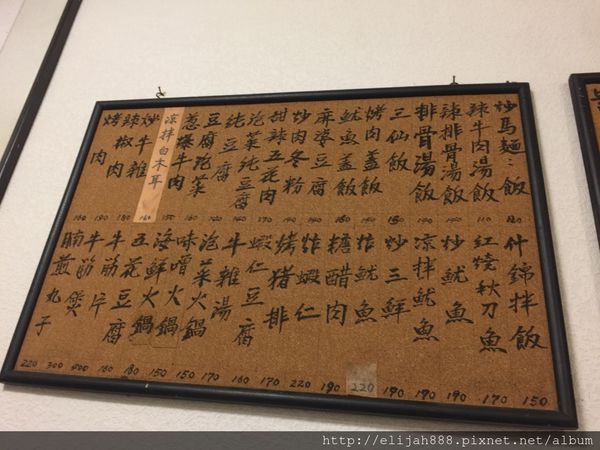 炒馬麵:飯 120
辣牛肉湯飯 110
辣排骨湯飯
排骨湯飯
三仙飯
烤肉蓋飯
魷魚蓋飯
麻婆豆腐
炒肉冬粉
甜辣五花肉
泡菜純豆腐
純豆腐
豆腐泡菜
蔥爆牛肉
涼拌白木耳
炒牛雜
辣椒肉
烤肉
什錦拌飯 150
紅燒秋刀魚 170
炒魷魚 190
涼拌魷魚 190
炒三鮮 190
炸魷魚 220
糖醋肉 190
炸蝦仁 220
烤豬排 170
蝦仁豆腐 160
牛雜湯 170
泡菜火鍋 150
味噌火鍋 150
海鮮火鍋 180
五花豆腐 160
牛筋片
牛筋煲 300
煎丸子 220
http://elijah888.pixnet.net/album